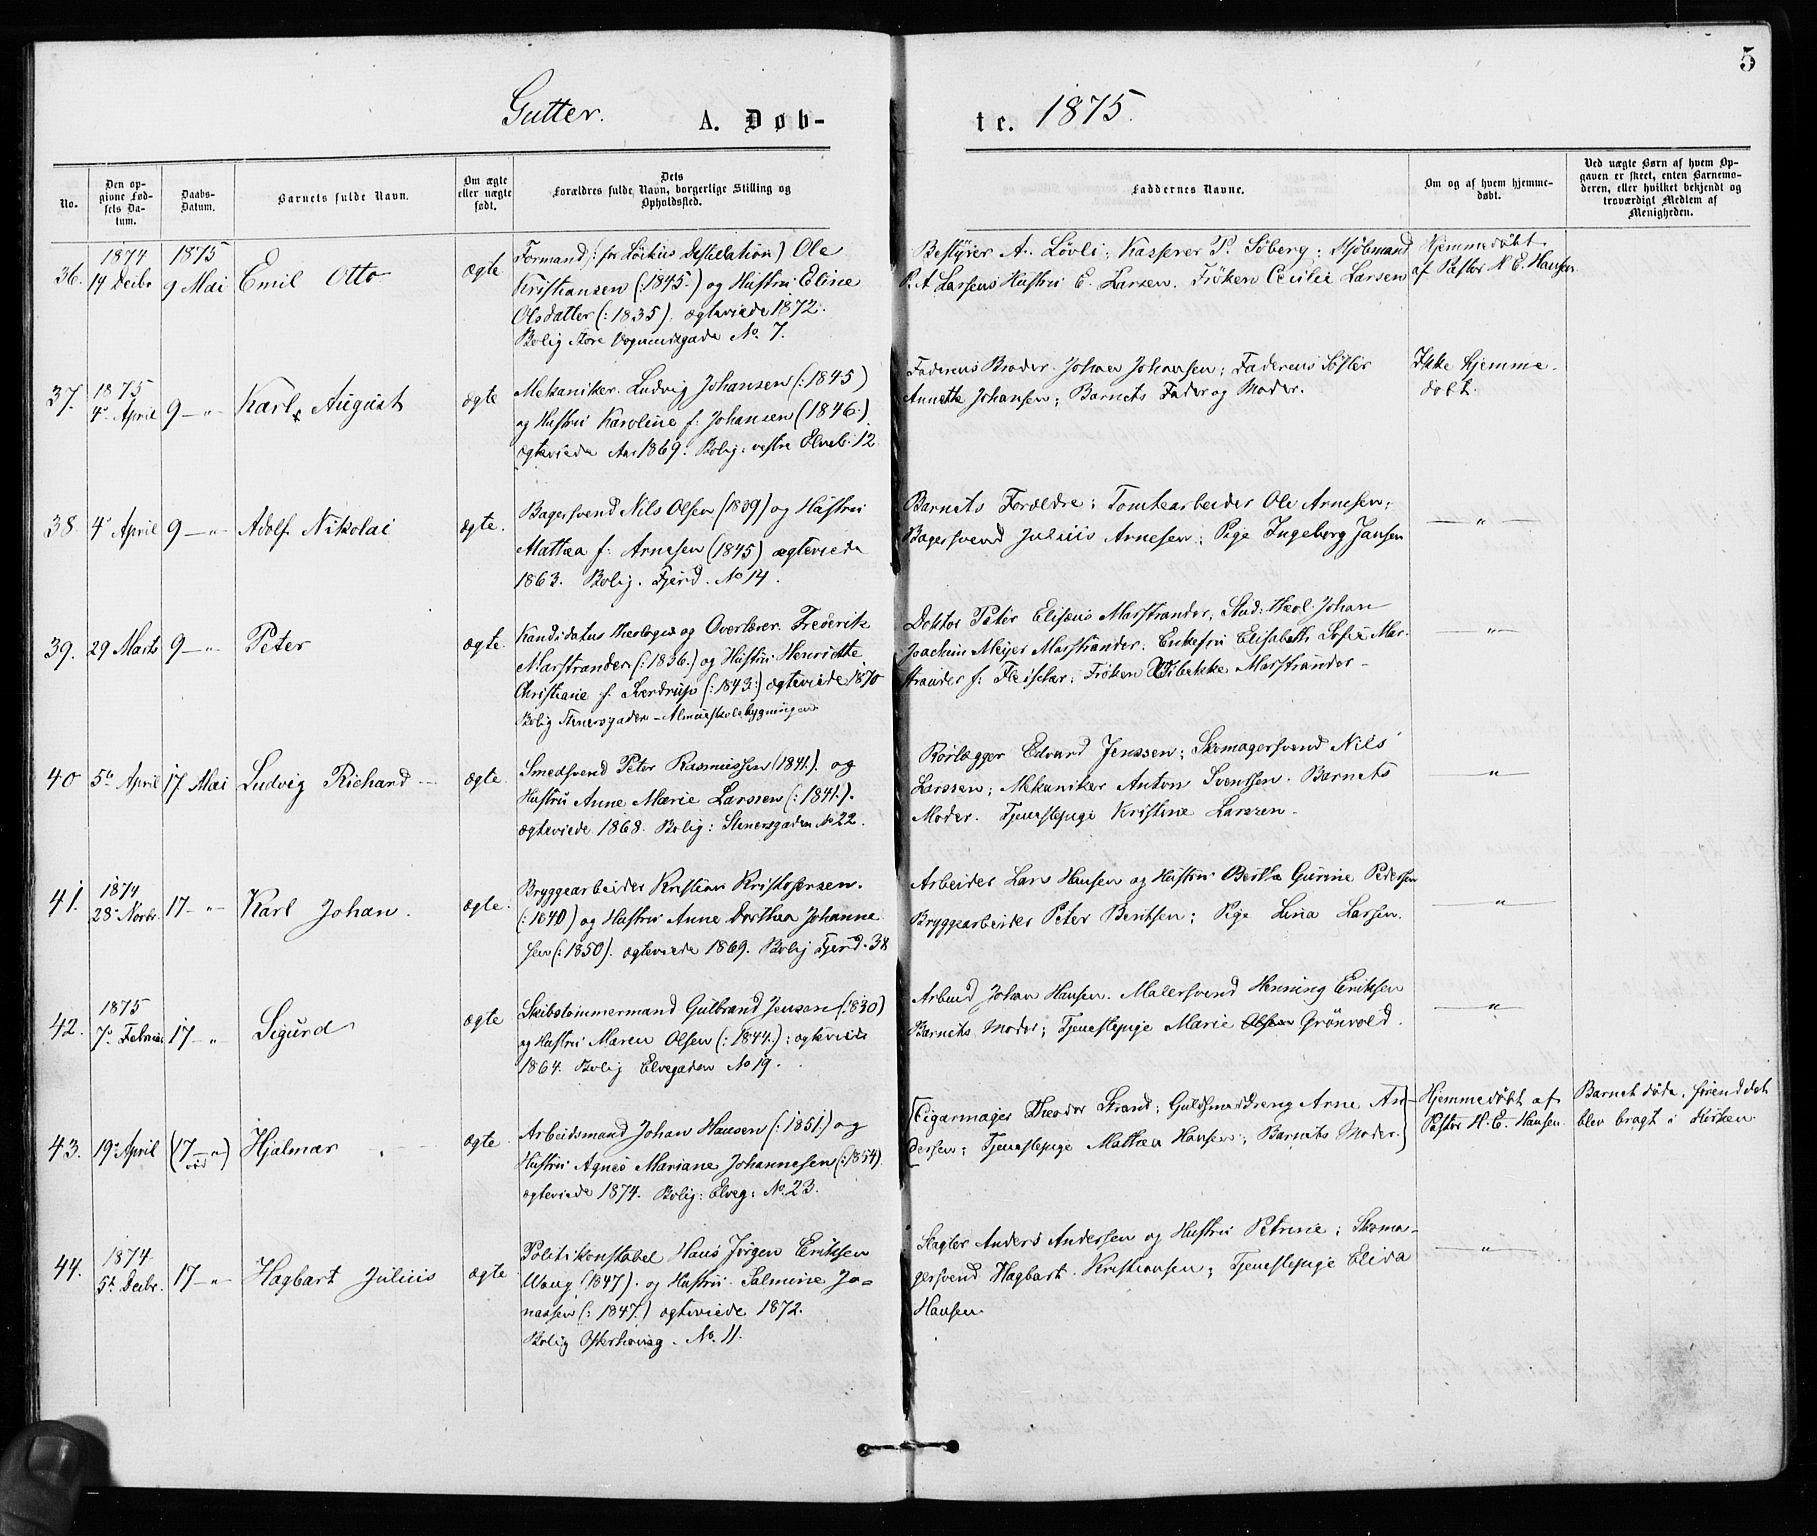 5
Gutter. A. Døb- te. 1875.
No.
Den op-
givne Fød-
sels Da-
tum.
Daabs-
Datum.
Barnets fulde Navn.
Om ægte
eller uægte
født.
Dets
Forældres fulde Navn, borgerlige Stilling og
Opholdssted.
Faddernes Navne.
Om og af hvem hjemme-
døbt.
Ved uægte Børn af hvem Op-
gaven er skeet, enten Barnemo-
deren, eller hvilket bekjendt og
troværdigt Medlem af
Menigheden.
36.
1874
14 Decbr
1875
9 Mai
Emil Otto
ægte
Formand (: for Destilation) Ole
Kristiansen (: 1845.) og Hustru Eline
Olsdatter (: 1835). ægteviede 1872.
Bolig Store Vognmandsgade No. 7.
Bestyrer A. Løvli; Kasserer P. Søberg;
P. A Larsens Hustru E. Larsen. Frøken Cecilie Larsen
Hjemmedøbt
af Pastor H. E. Hansen
37.
1875
4de April
9 — " —
Karl August
ægte
Mekaniker. Ludvig Johansen (: 1845)
og Hustru Karoline f: Johansen (1846.)
ægteviede Aar 1869. Bolig: vestre Elveb: 12
Faderens Broder. Johan Johansen; Faderens Søster
Annette Johansen; Barnets Fader og Moder.
Ikke hjemme-
døbt.
38
4de April
9 — " —
Adolf Nikolai
ægte.
Bagersvend Nils Olsen (1839) og Hustru
Mathea f: Arnesen (1845) ægteviede
1863. Bolig. Fjerd. No 14.
Barnets Forældre; Tomtearbeider Ole Arnesen;
Bagersvend Julius Arnesen; Pige Ingeborg Jansen
— " —
39.
29 Marts
9 — " —
Peter
ægte.
Kandidatus Theologiæ og Overlærer. Frederik
Marstrander (: 1836.) og Hustru Henriette
Christiane f. Sverdrup (: 1843:) ægteviede 1870
Bolig Stenersgaden - Almueskolebygningen
Doktor Peter Elisæus Marstrander; Stud: Theol. Johan
Joachim Meijer Marstrander; Enkefru Elisabeth Sofie Mar-
strander f: Fleischer; Frøken Wibekke Marstrander -
— " —
40
5te April
17 Mai
Ludvig Richard —
ægte.
Smedsvend Peter Rasmussen (1841.). og
Hustru Anne Marie Larssen (: 1841.).
ægteviede 1868. Bolig: Stenersgaden No 22.
Rørlægger Edvard Jenssen; Skomagersvend Nils
Larssen; Mekaniker Anton Svenssen. Barnets
Moder. Tjenestepige Kristine Larssen.
— " —
41.
1874
28de Novbr.
17 — " —
Karl Johan.
ægte.
Bryggearbeider Kristian Kristofersen.
(: 1840) og Hustru Anne Dorthea Johanne-
sen (: 1850). ægteviede 1869. Bolig Fjerd. 38
Arbeider Lars Hansen og Hustru Bertha Gurine Pedersen
Bryggearbeider Peter Berntsen; Pige Lina Larsen.
— " —
42.
1875
7de Februar
17 — " —
Sigurd
ægte
Skibstømmermand Gulbrand Jensen (: 1830)
og Hustru Maren Olsen (: 1844.): ægteviede
1864. Bolig Elvegaden No 19.
Arbmd Johan Hansen. Malersvend Henning Eriksen
Barnets Moder; Tjenestepige Marie Olsen Grönvold.
— " —
43.
19de April
(17 — " —)
Hjalmar
ægte.
Arbeidsmand Johan Hansen (: 1851.) og
Hustru Agnes Mariane Johannesen (: 1854).
ægteviede 1874. Bolig: Elveg: No. 23.
(Cigarmager Theodor Strand; Guldsmeddreng Arne An-
dersen; Tjenestepige Mathea Hansen; Barnets Moder.)
Hjemmedøbt af
Pastor H. E. Hansen.
Barnet døde, førend det
blev bragt i Kirken
44.
1874
5te Decbr.
17 — " —
Hagbart Julius
ægte
Politikonstabel Hans Jørgen Eriksen
Waug (1847). og Hustru. Salmine Jo-
nassen (: 1847.) ægteviede 1872.
Bolig Osterhausg. No. 11.
Slagter Anders Andersen og Hustru Petrine; Skoma-
gersvend Hagbart. Kristiansen; Tjenestepige Elida
Hansen.
— " —